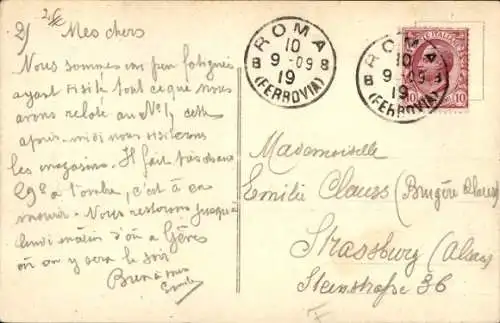 2) Mes chers
Nous sommes un peu fatigués
ayant visité tout ce que nous
avons relaté au No 1, cette
après-midi nous visiterons
les magasins. Il fait très chaud
29° à l'ombre, c'est à en
mourir. Nous resterons jusqu'à
lundi matin d'où à Gênes
où on y sera le soir
Bien à vous
ROMA
10
8 9 - 09 8
19
(FERROVIA)
ROMA
10
8 9 - 09 8
19
(FERROVIA)
POSTE ITALIANE
10 10
Mademoiselle
Emilie Clauss (Bruyère Clauss)
Strassburg (Alsace)
Steinstraße 36